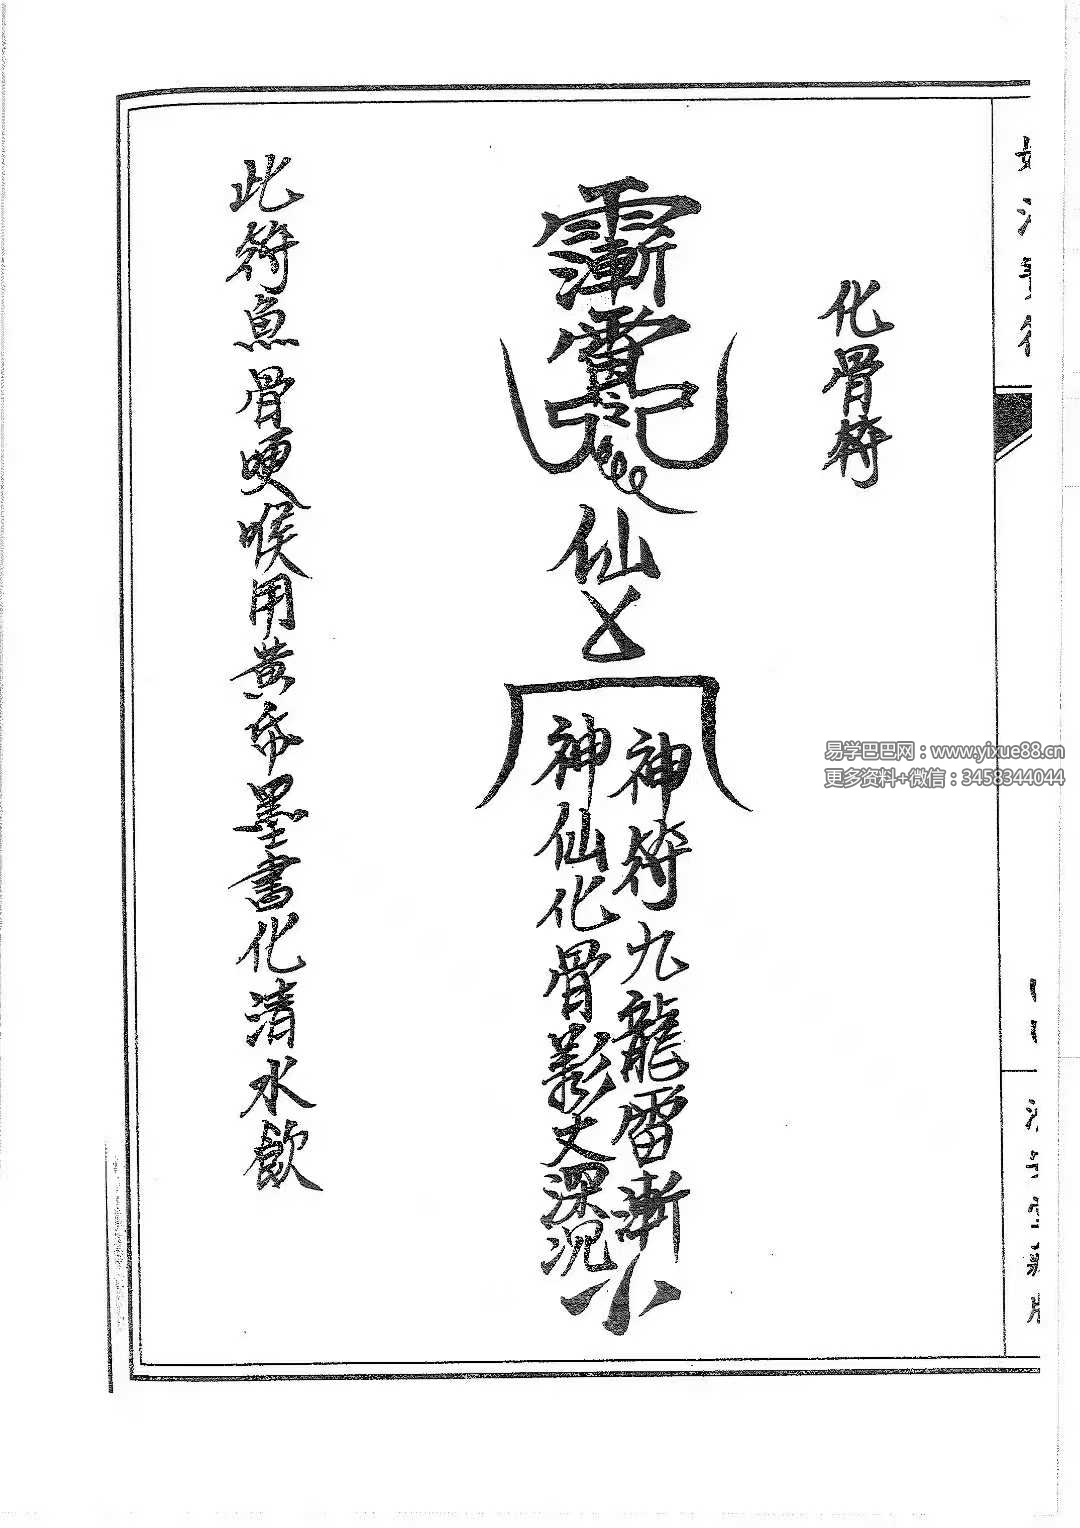 化骨符
仙
神符九龍雷漸
神仙化骨萬丈深況
此符魚骨哽喉用黄帋墨書化清水飲
易学巴巴网：www.yixue88.cn
更多资料+微信：3458344044